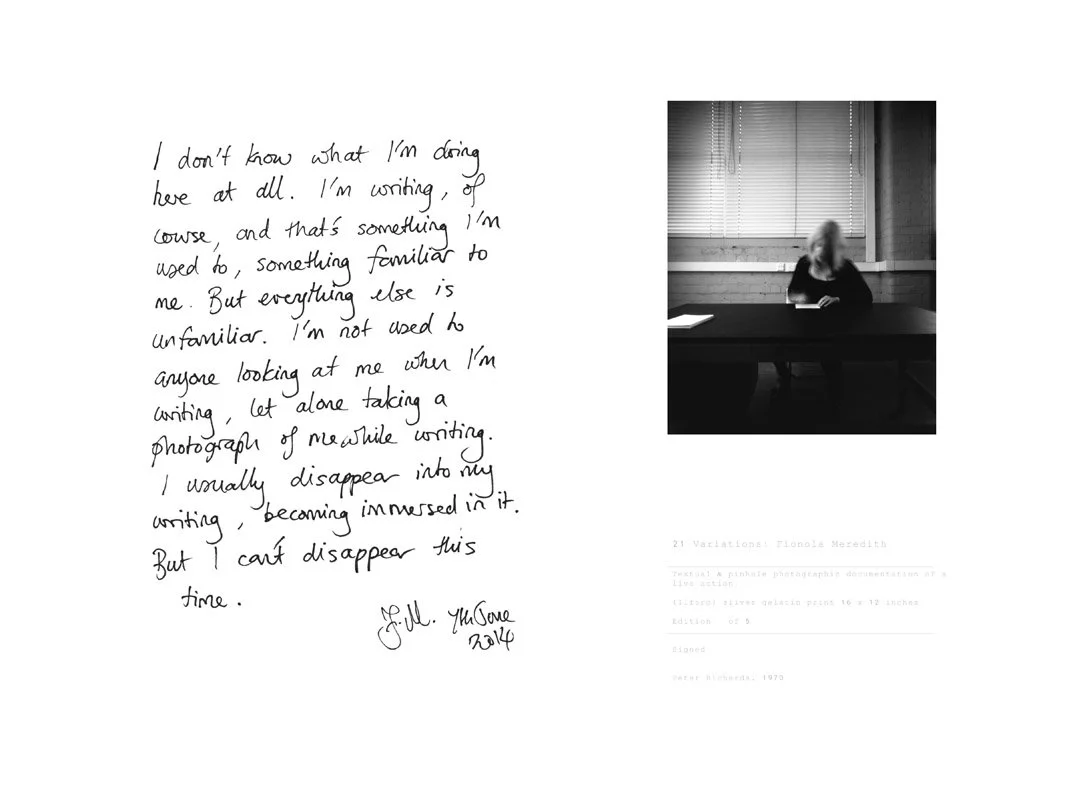 I don't know what I'm doing
here at all. I'm writing, of
course, and that's something I'm
used to, something familiar to
me. But everything else is
unfamiliar. I'm not used to
anyone looking at me when I'm
writing, let alone taking a
photograph of me while writing.
I usually disappear into my
writing, becoming immersed in it.
But I can't disappear this
time.
F.M. 7th June
2014
21 Variations: Fionola Meredith
Textual & pinhole photographic documentation of a
live action
silver gelatin print 16 x 12 inches
Edition of 5
Signed
Peter Richards, 1970